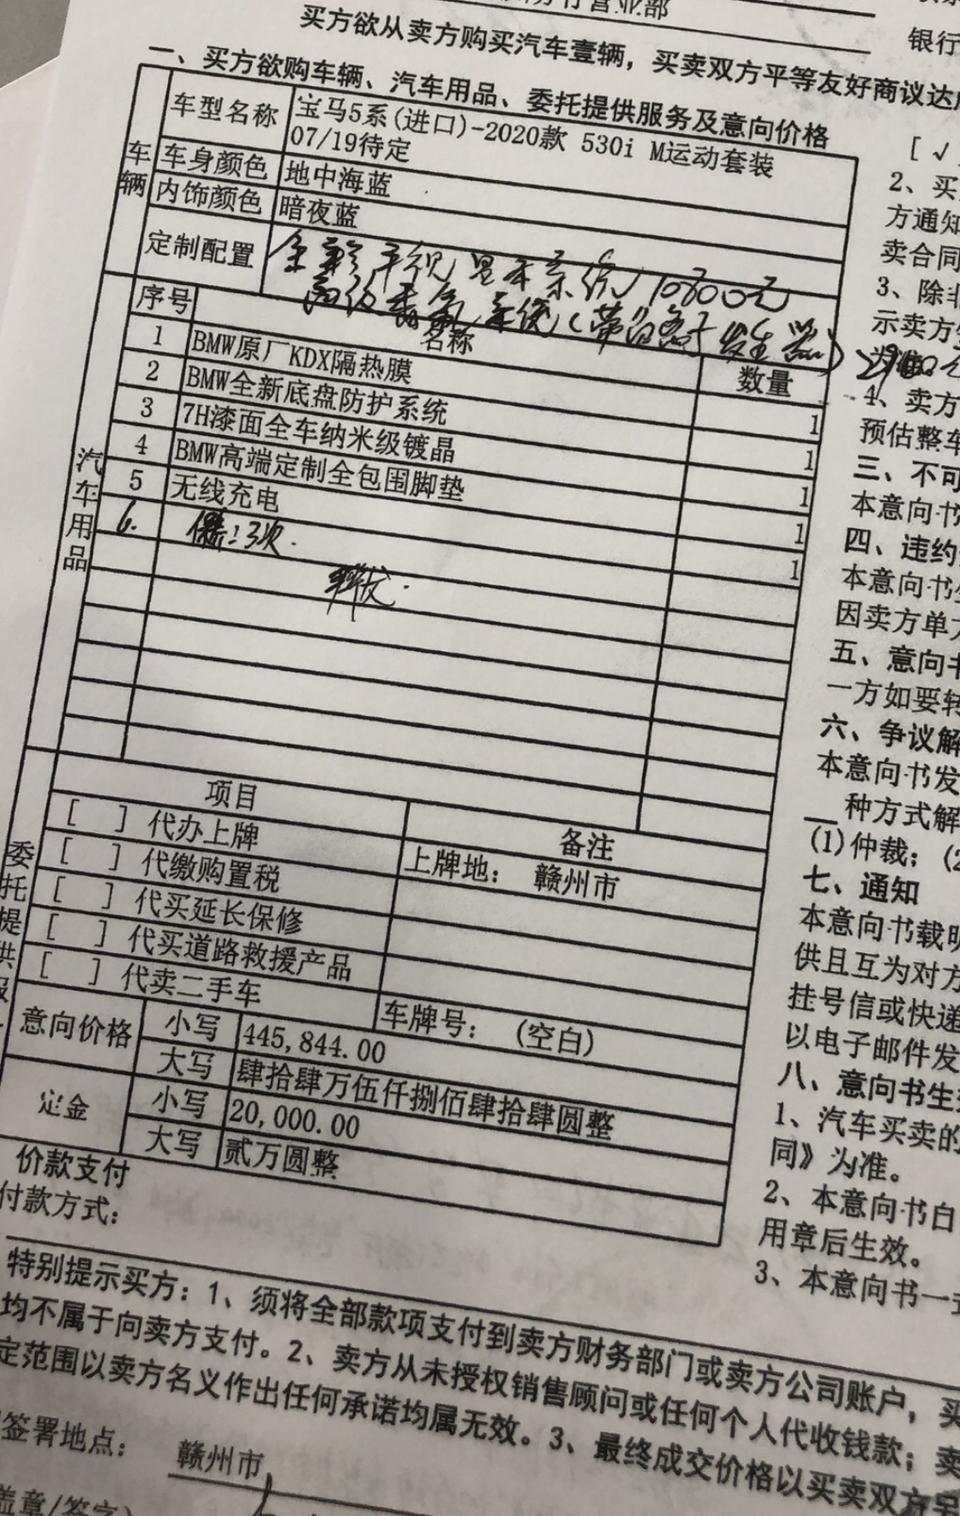 营业部
买方欲从卖方购买汽车壹辆，买卖双方平等友好商议达
一、买方欲购车辆、汽车用品、委托提供服务及意向价格
车辆
车型名称 宝马5系(进口)-2020款 530i M运动套装
07/19待定
车身颜色 地中海蓝
内饰颜色 暗夜蓝
定制配置 全彩平视显示系统 10800元
(带负离子发生器) 2900元
汽车用品
序号 名称 数量
1 BMW原厂KDX隔热膜 1
2 BMW全新底盘防护系统 1
3 7H漆面全车纳米级镀晶 1
4 BMW高端定制全包围脚垫 1
5 无线充电 1
6. 保养:3次.
委托提供服
项目 备注
[ ] 代办上牌 上牌地： 赣州市
[ ] 代缴购置税
[ ] 代买延长保修
[ ] 代买道路救援产品
[ ] 代卖二手车 车牌号： (空白)
意向价格 小写 445,844.00
大写 肆拾肆万伍仟捌佰肆拾肆圆整
定金 小写 20,000.00
大写 贰万圆整
价款支付
付款方式：
特别提示买方：1、须将全部款项支付到卖方财务部门或卖方公司账户，买
均不属于向卖方支付。2、卖方从未授权销售顾问或任何个人代收钱款；卖
定范围以卖方名义作出任何承诺均属无效。3、最终成交价格以买卖双方另
签署地点： 赣州市
盖章/签字)
银行
[ √
2、买
方通知
卖合同
3、除非
示卖方
为准
4、卖方
预估整车
三、不可
本意向书
四、违约
本意向书
因卖方单方
五、意向书
一方如要转
六、争议解
本意向书发
__种方式解
(1)仲裁；(2
七、通知
本意向书载明
供且互为对方
挂号信或快递
以电子邮件发
八、意向书生效
1、汽车买卖的
同》为准。
2、本意向书自
用章后生效。
3、本意向书一式